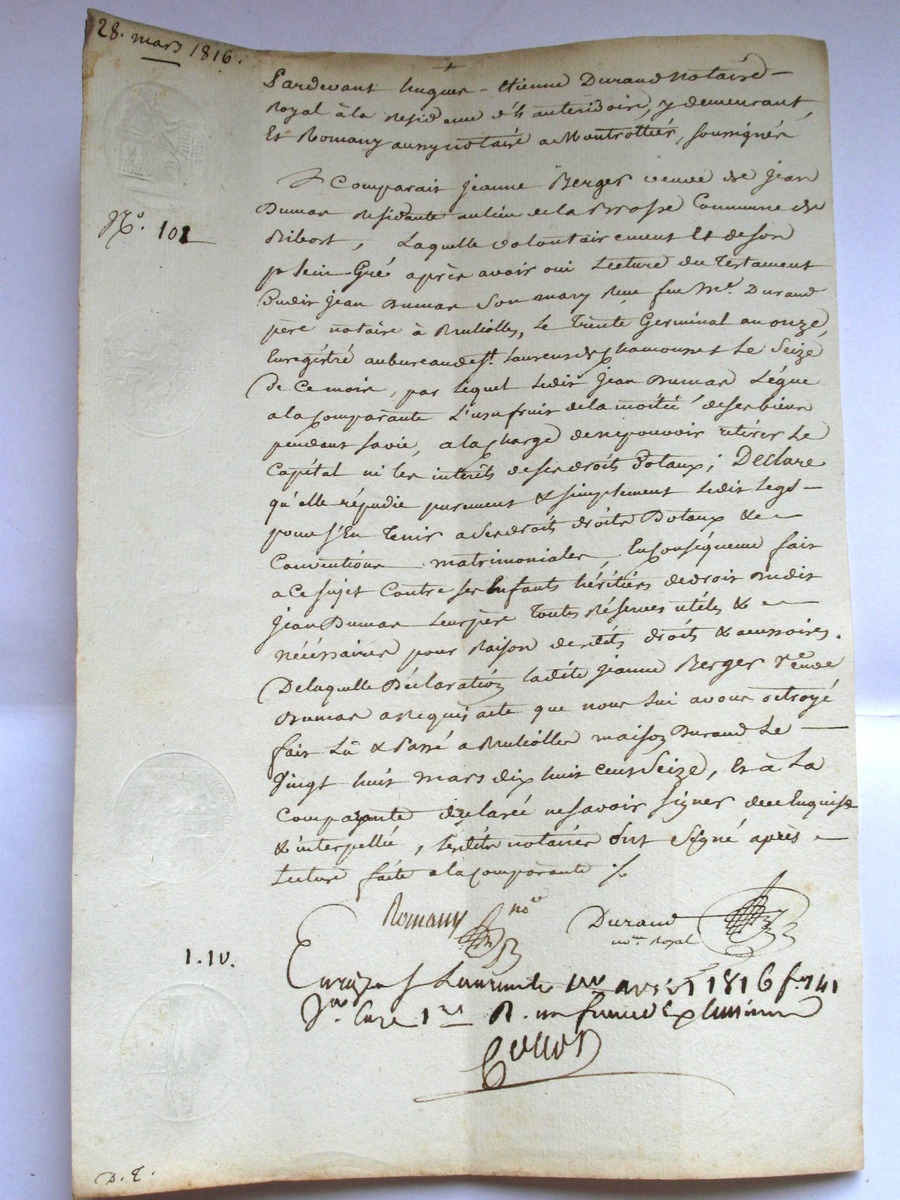 28. mars 1816.
Pardevant hugues - etienne Durand Notaire -
Royal à la Residence d'hauterivoire, y demeurant
Et Romany aussy notaire a Montrottier, soussignés
N.º 102
Comparait jeanne Berger veuve de jean
Dumas Residante au lieu de la Brosse Commune de
Ribost, Laquelle volontairement Et de son
plein Gré après avoir oui Lecture du Testament
dudit jean Dumas Son mary Reçu feu Me. Durand
père notaire à Brullolles, Le Trente Germinal an onze,
Enregistré au bureau de St. Laurent de chamousset Le Seize
de Ce mois, par Lequel Ledit jean Dumas Lègue
a la Comparante L'usufruit de la moitié de ses biens
pendant sa vie, a la charge de ne pouvoir retirer Le
Capital ni les intérêts de ses droits Dotaux; Declare
qu'elle répudie purement & simplement Ledit Legs -
pour s'En Tenir a ses droits droits Dotaux & -
Conventions matrimoniales, En Conséquence fait
a Ce sujet Contre ses Enfants héritiers de droit dudit
jean Dumas Leur père Toutes Réserves utiles & -
nécéssaires pour Raison desdits droits & accessoires.
De laquelle Déclaration ladite jeanne Berger veuve
Dumas a Requis acte que nous Lui avons octroyé
fait Lu & Passé a Brullolles maison Durand Le -
Vingt huit mars dix huit Cent Seize, Et a La
Comparante declaré ne savoir signer de ce Enquise
& interpellée, lesdits notaires Ont Signé après -
Lecture faite a la Comparante
Romany nre
Durand
nore Royal
1.10.
Enregé St Laurent le avril 1816 fo 141
Vo Case 1re R. un franc dix centimes
D. T.